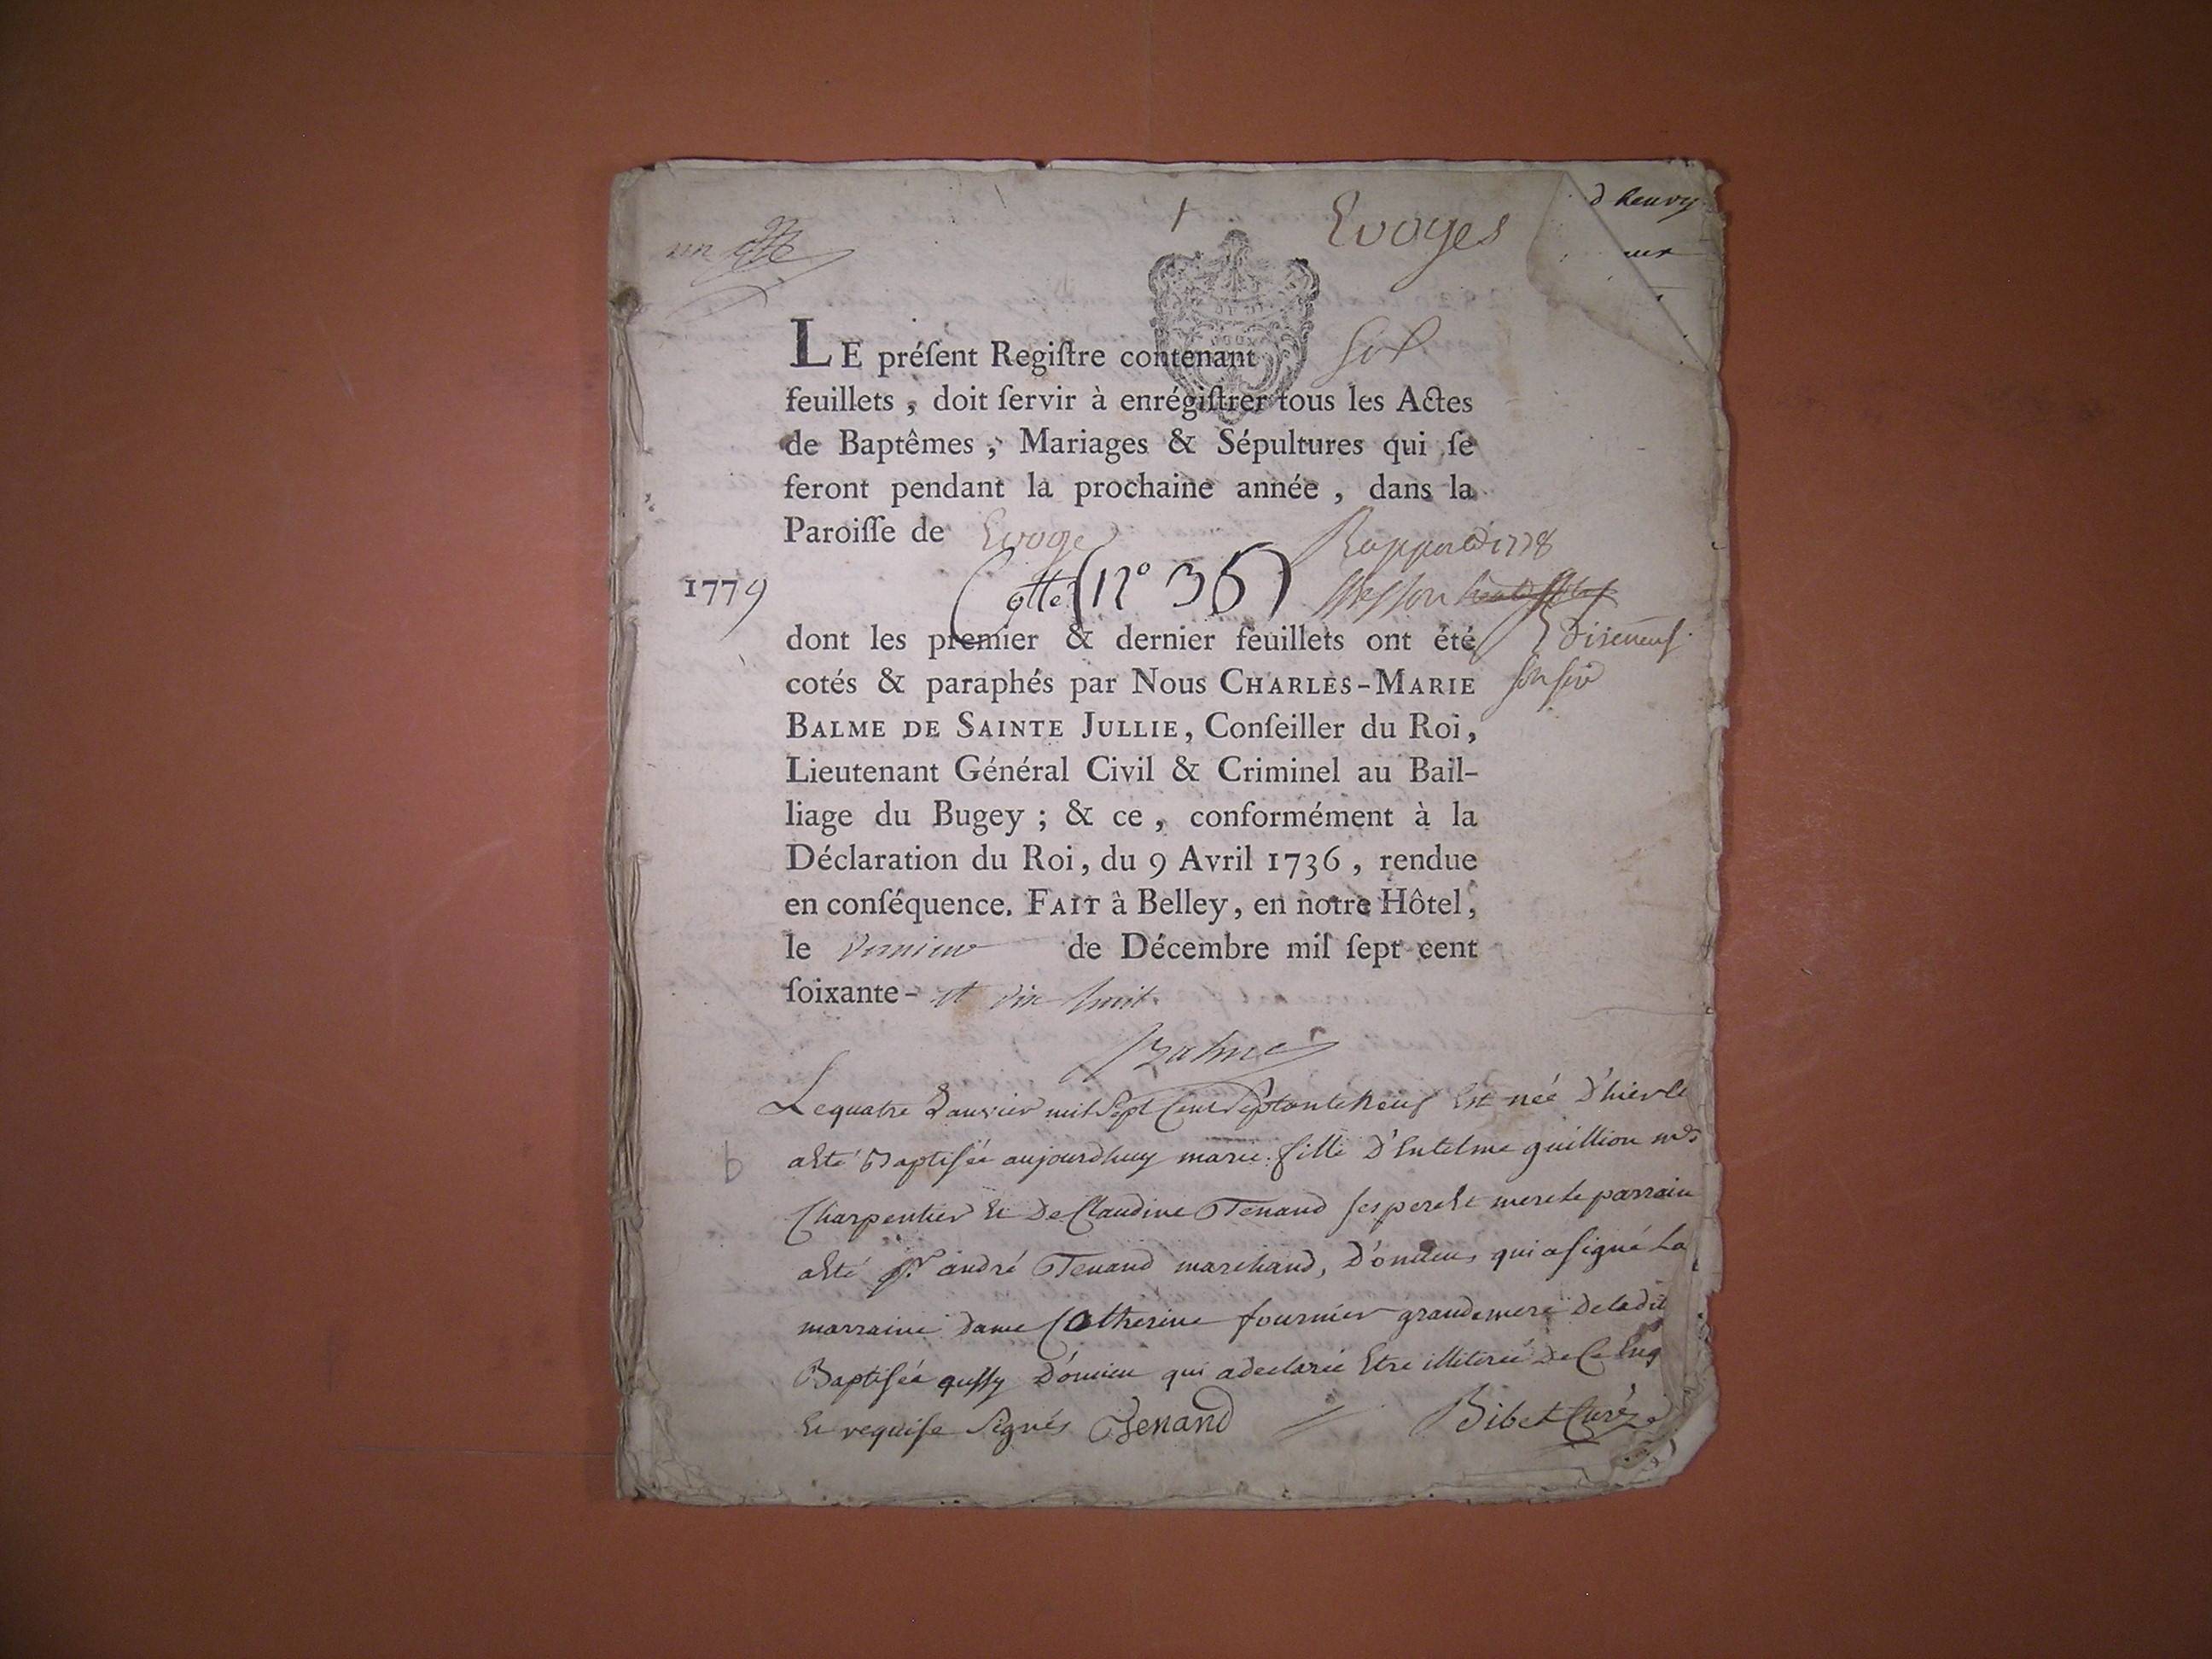 Evoges
d heury
LE préſent Regiſtre contenant six
feuillets, doit ſervir à enrégiſtrer tous les Actes
de Baptêmes, Mariages & Sépultures qui ſe
feront pendant la prochaine année, dans la
Paroiſſe de Evoge
1779
Cotte (N° 36)
dont les premier & dernier feuillets ont été
cotés & paraphés par Nous CHARLES-MARIE
BALME DE SAINTE JULLIE, Conſeiller du Roi,
Lieutenant Général Civil & Criminel au Bail-
liage du Bugey ; & ce, conformément à la
Déclaration du Roi, du 9 Avril 1736, rendue
en conſéquence. FAIT à Belley, en notre Hôtel,
le dernier de Décembre mil ſept cent
ſoixante- et dix huit.
Balme
Le quatre Janvier mil Sept Cent Septante neuf Est née D'hier Et
a Eté Baptisée aujourdhuy marie fille D'Entelme guillion md
b
Charpentier Et De Claudine Tenand ses pere Et mere le parrain
a Eté Sr andré Tenand marchand, D'oncieu qui a signé La
marraine dame Catherine fournier grandemere De ladit
Baptisée aussy D'oncieu qui a declarée Etre illiterée De Ce Enq
Et requise Signés Tenand Bibet Curé